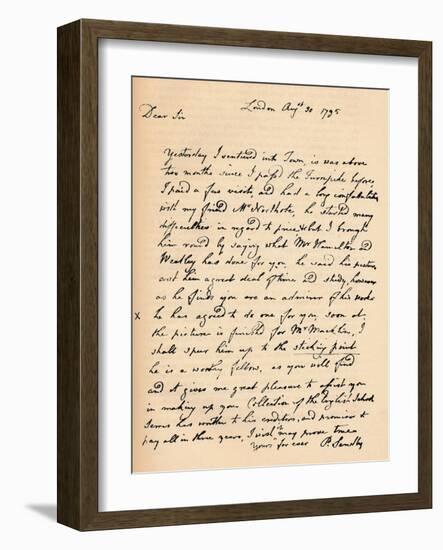 London Augst 30 1795
Dear Sir
Yesterday I ventured into Town, is was above
two months since I pass'd the Turnpike before,
I paid a few visits and had a long confabulation
with my friend Mr Northcote, he started many
difficulties in regard to price &c but I brought
him round by saying what Mr Hamilton and
Weatley has done for you. he said his pictures
cost him a great deal of time and study, however
as he finds you are an admirer of his works
x he has agreed to do one for you, soon as
the picture is finished for Mr Macklin, I
shall spur him up to the sticking point
he is a worthy fellow, as you will find
and it gives me great pleasure to assist you
in making up your Collection of the English School
has written to his creditors, and promises to
pay all in three years, I wish it may prove true
Yours for ever P. Sandby